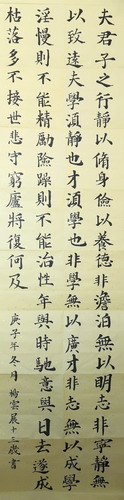 夫君子之行靜以脩身儉以養德非澹泊無以明志非寧靜無
以致遠夫學湏靜也才湏學也非學無以廣才非志無以成學
淫慢則不能精勵險躁則不能治性年與時馳意與日去遂成
枯落多不接世悲守窮廬將復何及
庚子年冬月楊雲晨十二歲書